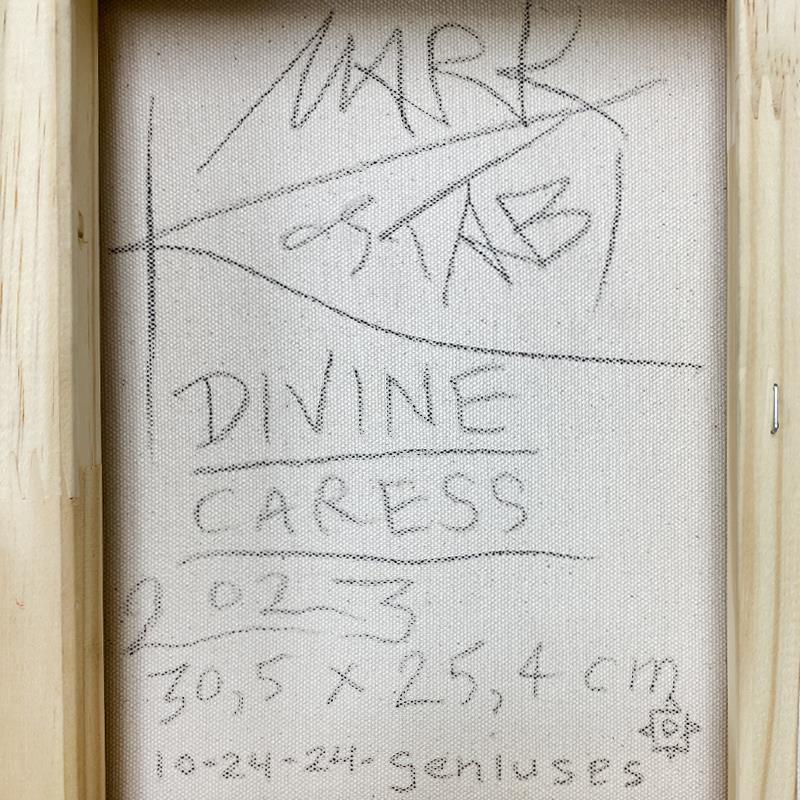 MARK
OSTAB
DIVINE
CARESS
2023
30,5 x 25,4 cm
10-24-24-geniuses